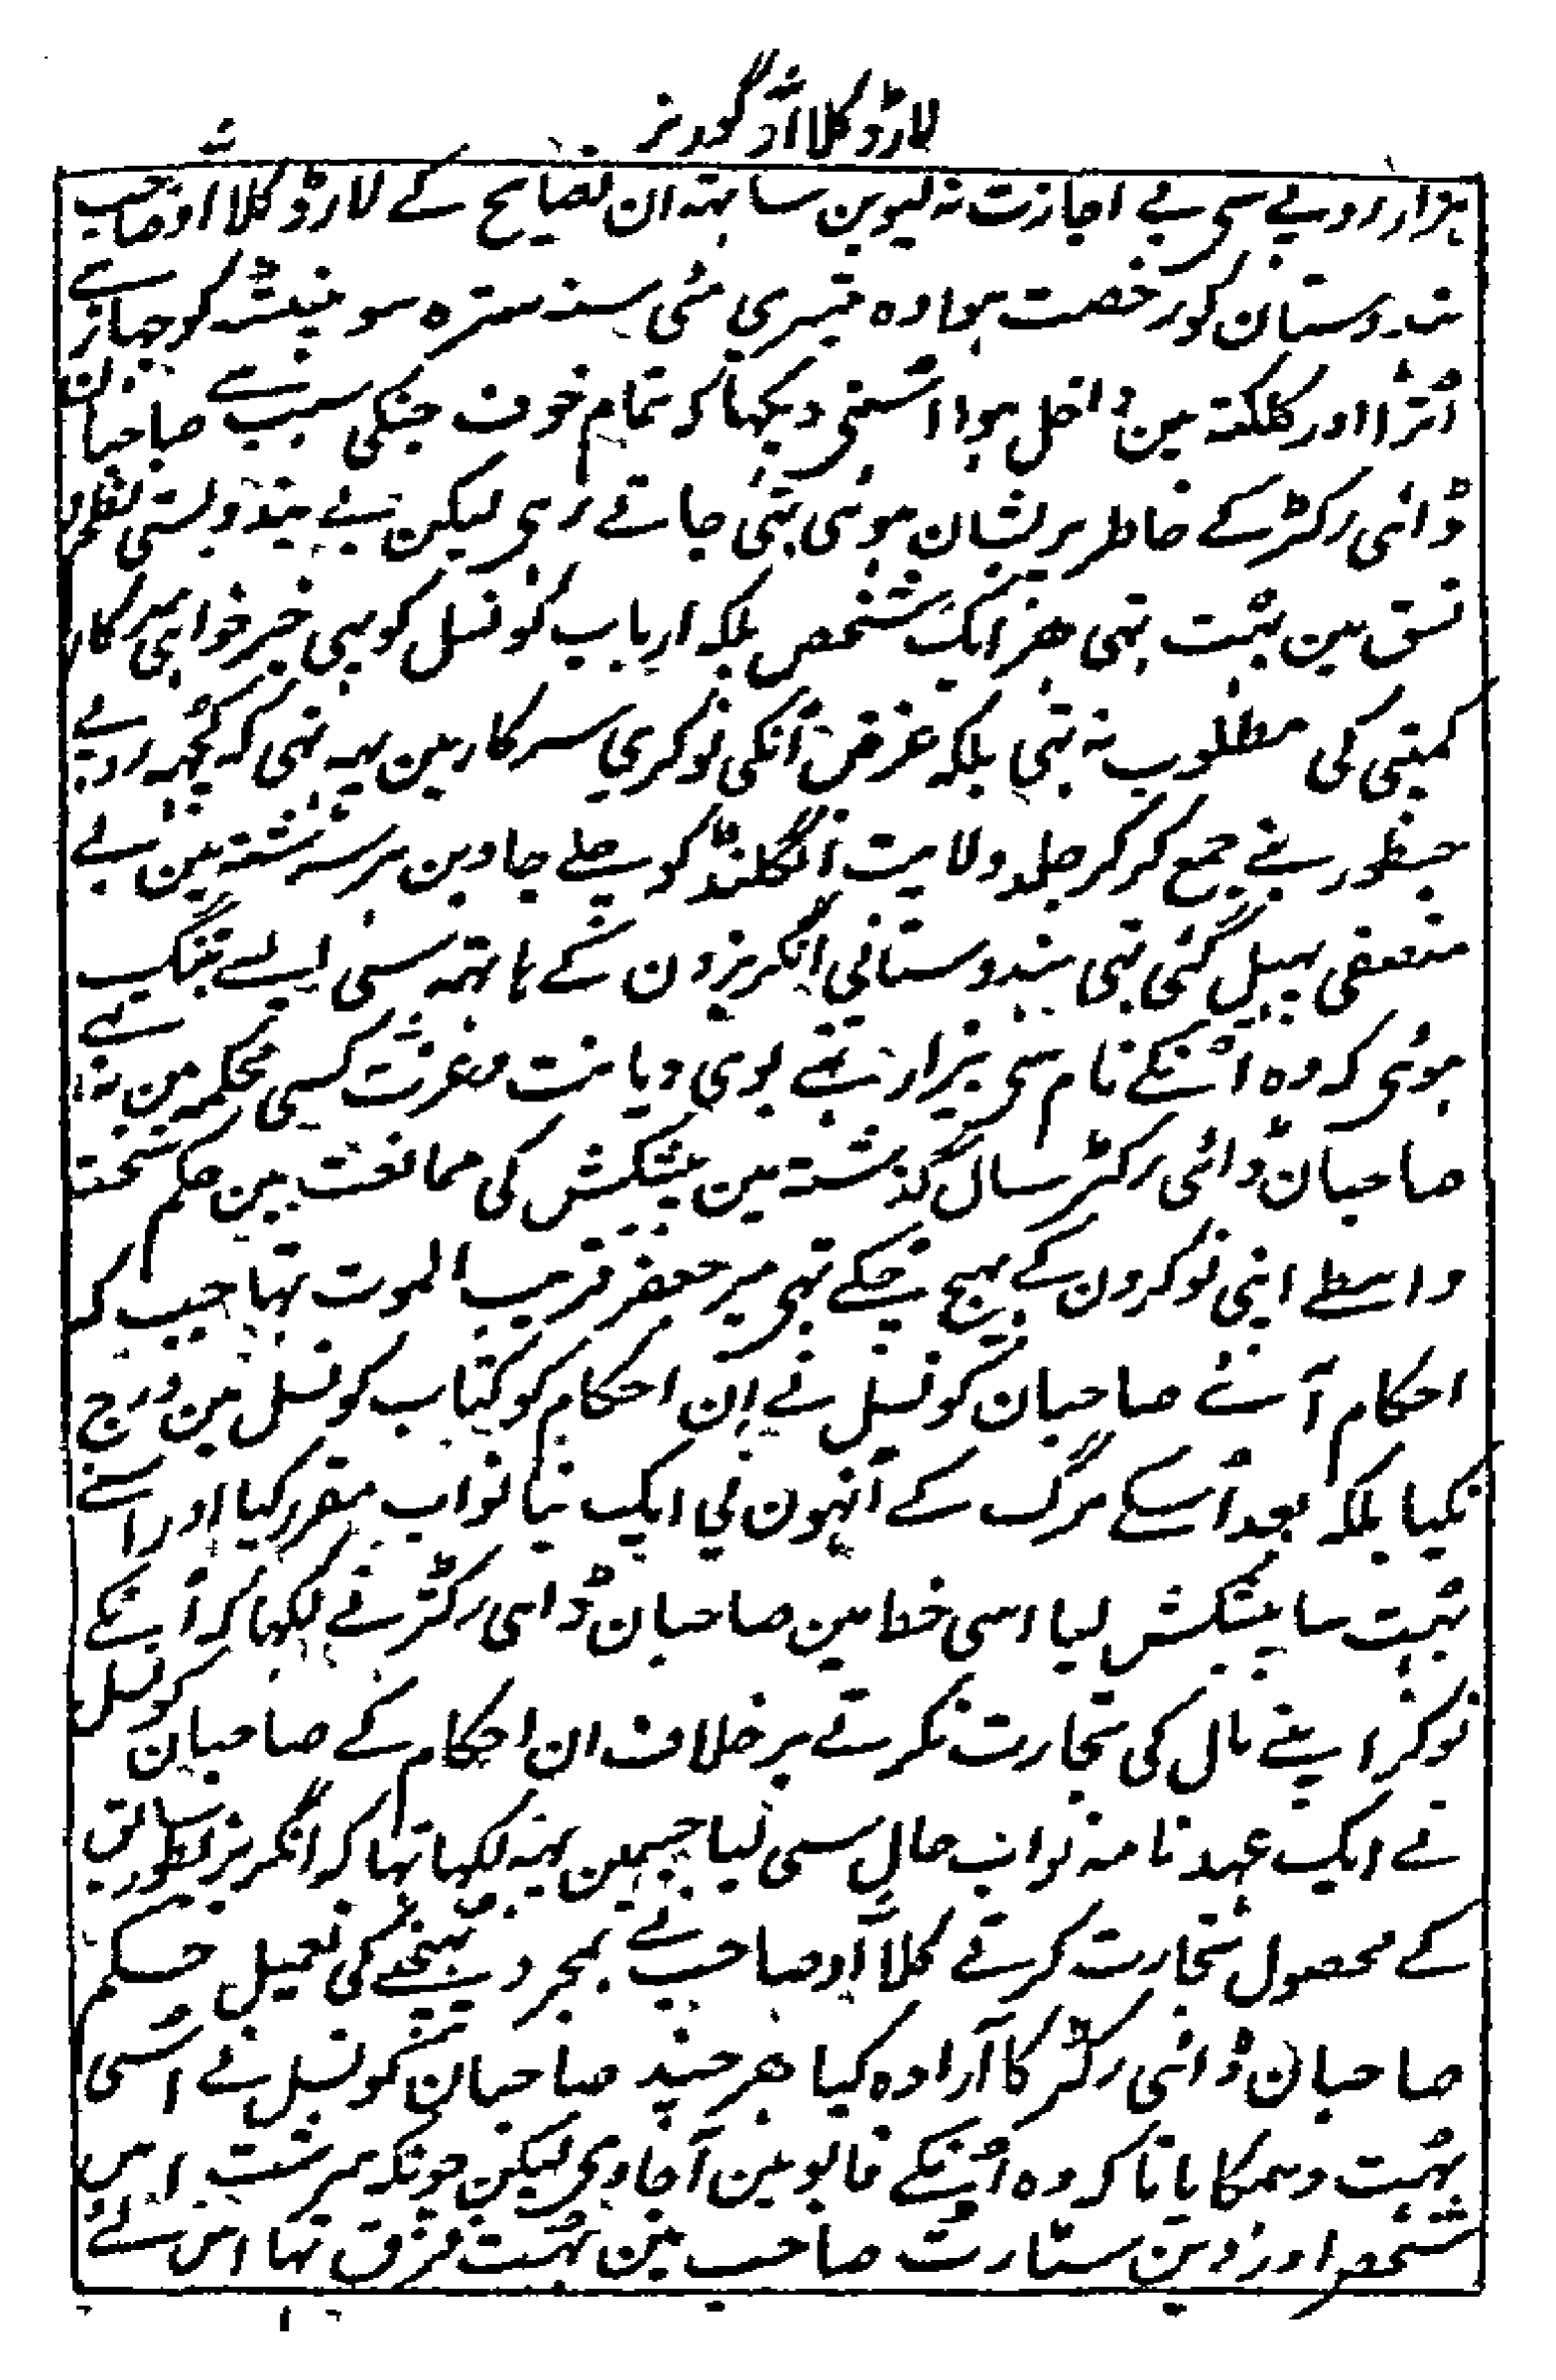 لارڈ کلااؤ گورنر
ہزار روپیے سی بے اجازت نہ لیوین ساتہہ ان نصایح کے لارڈ کلااؤ صاحب
ہندوستان کو رخصت ہوا وہ تیسری مئی سنہ سترہ سو پینسٹہ کو جہاز سے
اُترا اور کلکتہ مین داخل ہوا اُسنی دیکہا کہ تمام خوف جنکی سبب سے صاحبان
ڈائی رکٹر کے خاطر پریشان ہوئی تہی جاتے رہی لیکن بے بندوبستی نظم و
نسق مین بہُت تہی ھر ایک شخص بلکہ ارباب کونسل کو بہی خیر خواہی سرکار
کمپنی کی مطلوب نہ تہی بلکہ غرض اُنکی نوکری سرکار مین یہہ تہی کہ کُچہہ روپیے
جسطور بنے جمع کر کر جلد ولایت انگلنڈ کو چلے جاوین ہر سر رشتہ مین بے
منصفی پہیل گئی تہی ہندوستانی انگریزون کے ہاتہہ سی ایسے تنگ
ہوئی کہ وہ اُنکے نام سی بیزار تہے بوی دیانت و عزت کسی محکمہ مین نہ تہے
صاحبان ڈائی رکٹر سال گذشتہ مین پیشکش کی ممانعت مین حکم سخت
واسطے اپنی نوکرون کے بہیج چکے تہی میر جعفر قریب الموت تہا جب کہ
احکام آئے صاحبان کونسل نے اِن احکام کو کتاب کونسل مین درج
نکیا بلکہ بعد اُسکے مرگ کے اُنہون نی ایک نیا نواب مقرر کیا اور اُسنے
بہُت سا پیشکش لیا اسی خط مین صاحبان ڈائی رکٹر نے لکہا کہ اُنکے
نوکر اپنے مال کی تجارت نکرتے برخلاف ان احکام کے صاحبان کونسل
نے ایک عہد نامہ نواب حال سی لیا جسمین یہہ لکہا تہا کہ انگریز بطور سابق بے
کے محصول تجارت کرتے کلااؤ صاحب نے بمجرد پہنچنے کی تعمیل حسکم
صاحبان ڈائی رکٹر کا آرادہ کیا ھر چند صاحبان کونسل نے اُسی
بہُت دہمکایا تاکہ وہ اُنکے قابو مین آجاوی لیکن چونکہ سرشت اِس
شخص اور وین ستارت صاحب مین بہُت فرق تہا اس لئے